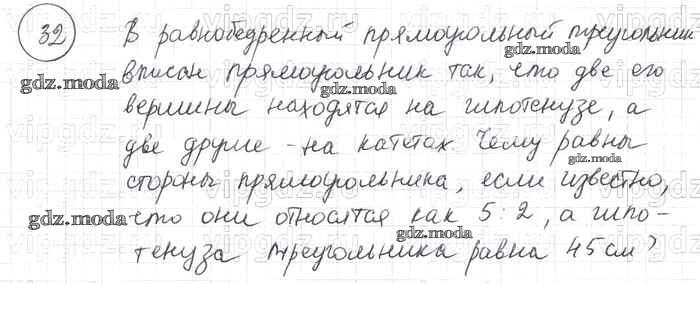 32
В равнобедренный прямоугольный треугольник
вписан прямоугольник так, что две его
вершины находятся на гипотенузе, а
две другие - на катетах. Чему равны
стороны прямоугольника, если известно,
что они относятся как 5:2, а гипо-
тенуза треугольника равна 45 см?
gdz.moda
gdz.moda
gdz.moda
gdz.moda
gdz.moda
gdz.moda